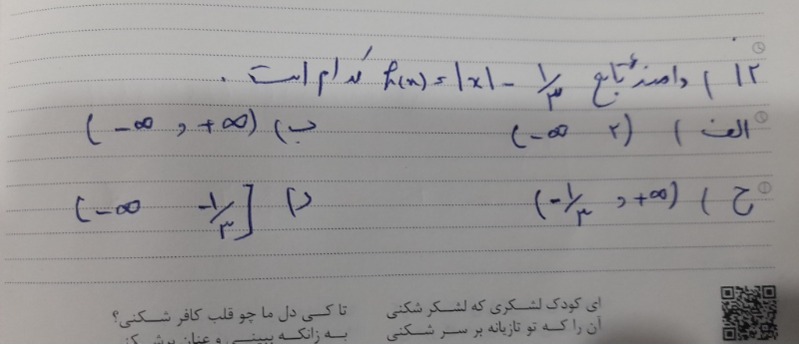 ۱۲) دامنهٔ تابع h(x) = |x| - ۱/۳ کدام است.
الف) (-∞ ۲) ب) (-∞ , +∞)
ج) (-۱/۳ , +∞) د) (-∞ -۱/۳]
ای کودک لشکری که لشکر شکنی تا کی دل ما چو قلب کافر شکنی؟
آن را که تو تازیانه بر سر شکنی به زانکه ببینی و عنان برشکنی